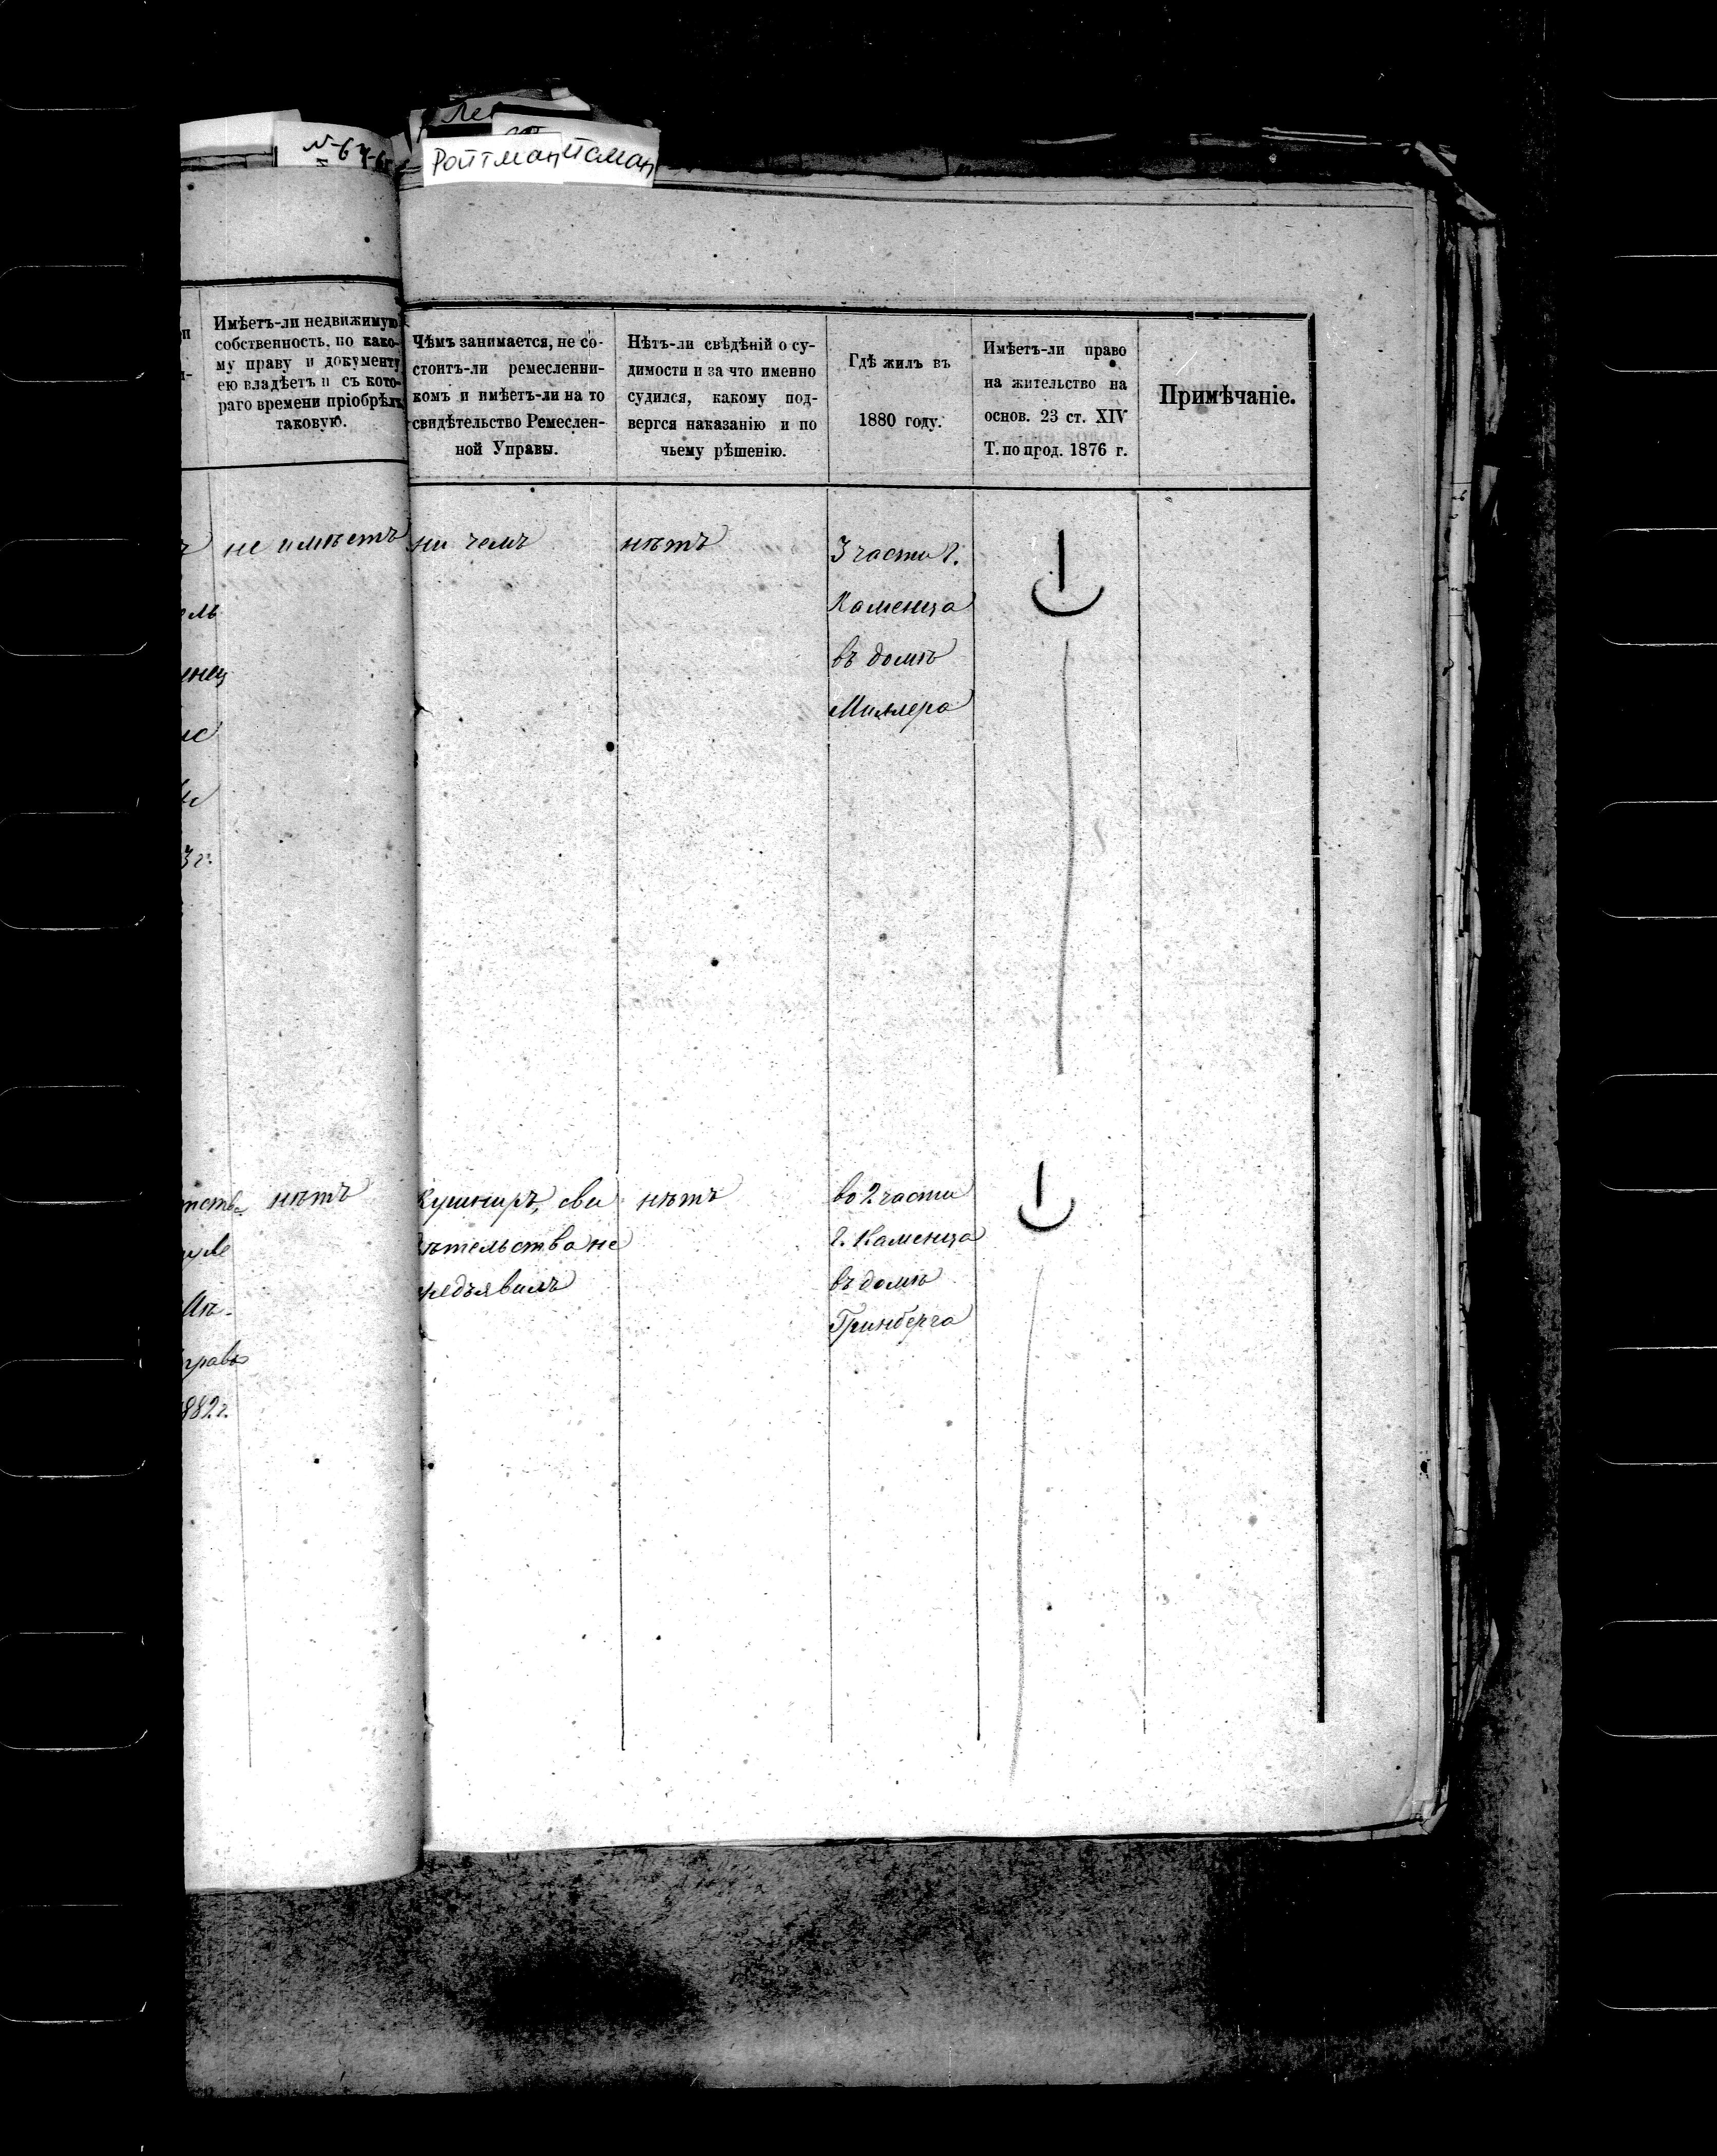 Ройтман
Имѣетъ-ли недвижимую
собственность, по како-
му праву и документу
ею владѣетъ и съ кото-
раго времени пріобрѣлъ
таковую.
Чѣмъ занимается, не со-
стоитъ-ли ремесленни-
комъ и имѣетъ-ли на то
свидѣтельство Ремеслен-
ной Управы.
Нѣтъ-ли свѣдѣній о су-
димости и за что именно
судился, какому под-
вергся наказанію и по
чьему рѣшенію.
Гдѣ жилъ въ
1880 году.
Имѣетъ-ли право
на жительство на
основ. 23 ст. XIV
Т. по прод. 1876 г.
Примѣчаніе.
не имѣетъ
ни чемъ
нѣтъ
3 части г.
Каменца
въ домѣ
Миллера
3 г.
нѣтъ
Кушниръ, сви
дѣтельства не
предъявилъ
нѣтъ
во 2 части
г. Каменца
въ домѣ
Гринберга
882 г.